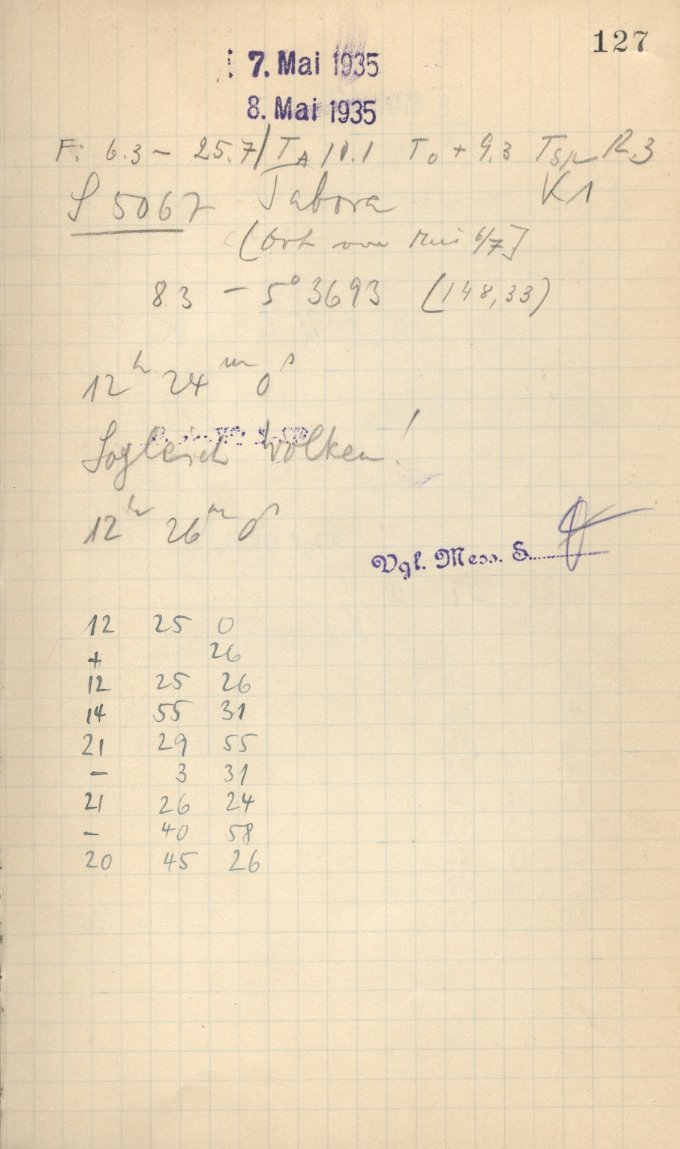 127
7. Mai 1935
8. Mai 1935
F: 6.3 – 25.7 / T_A 10.1 T_0 + 9.3 T_Sp R. 3
S 5067 Tabora K1
(Ort von Mai 6/7)
83 – 5° 3693 (148,33)
12h 24m 0s
Sogleich Wolken!
12h 26m 0s
Vgl. Mess. S.
12 25 0
+ 26
12 25 26
14 55 31
21 29 55
– 3 31
21 26 24
– 40 58
20 45 26